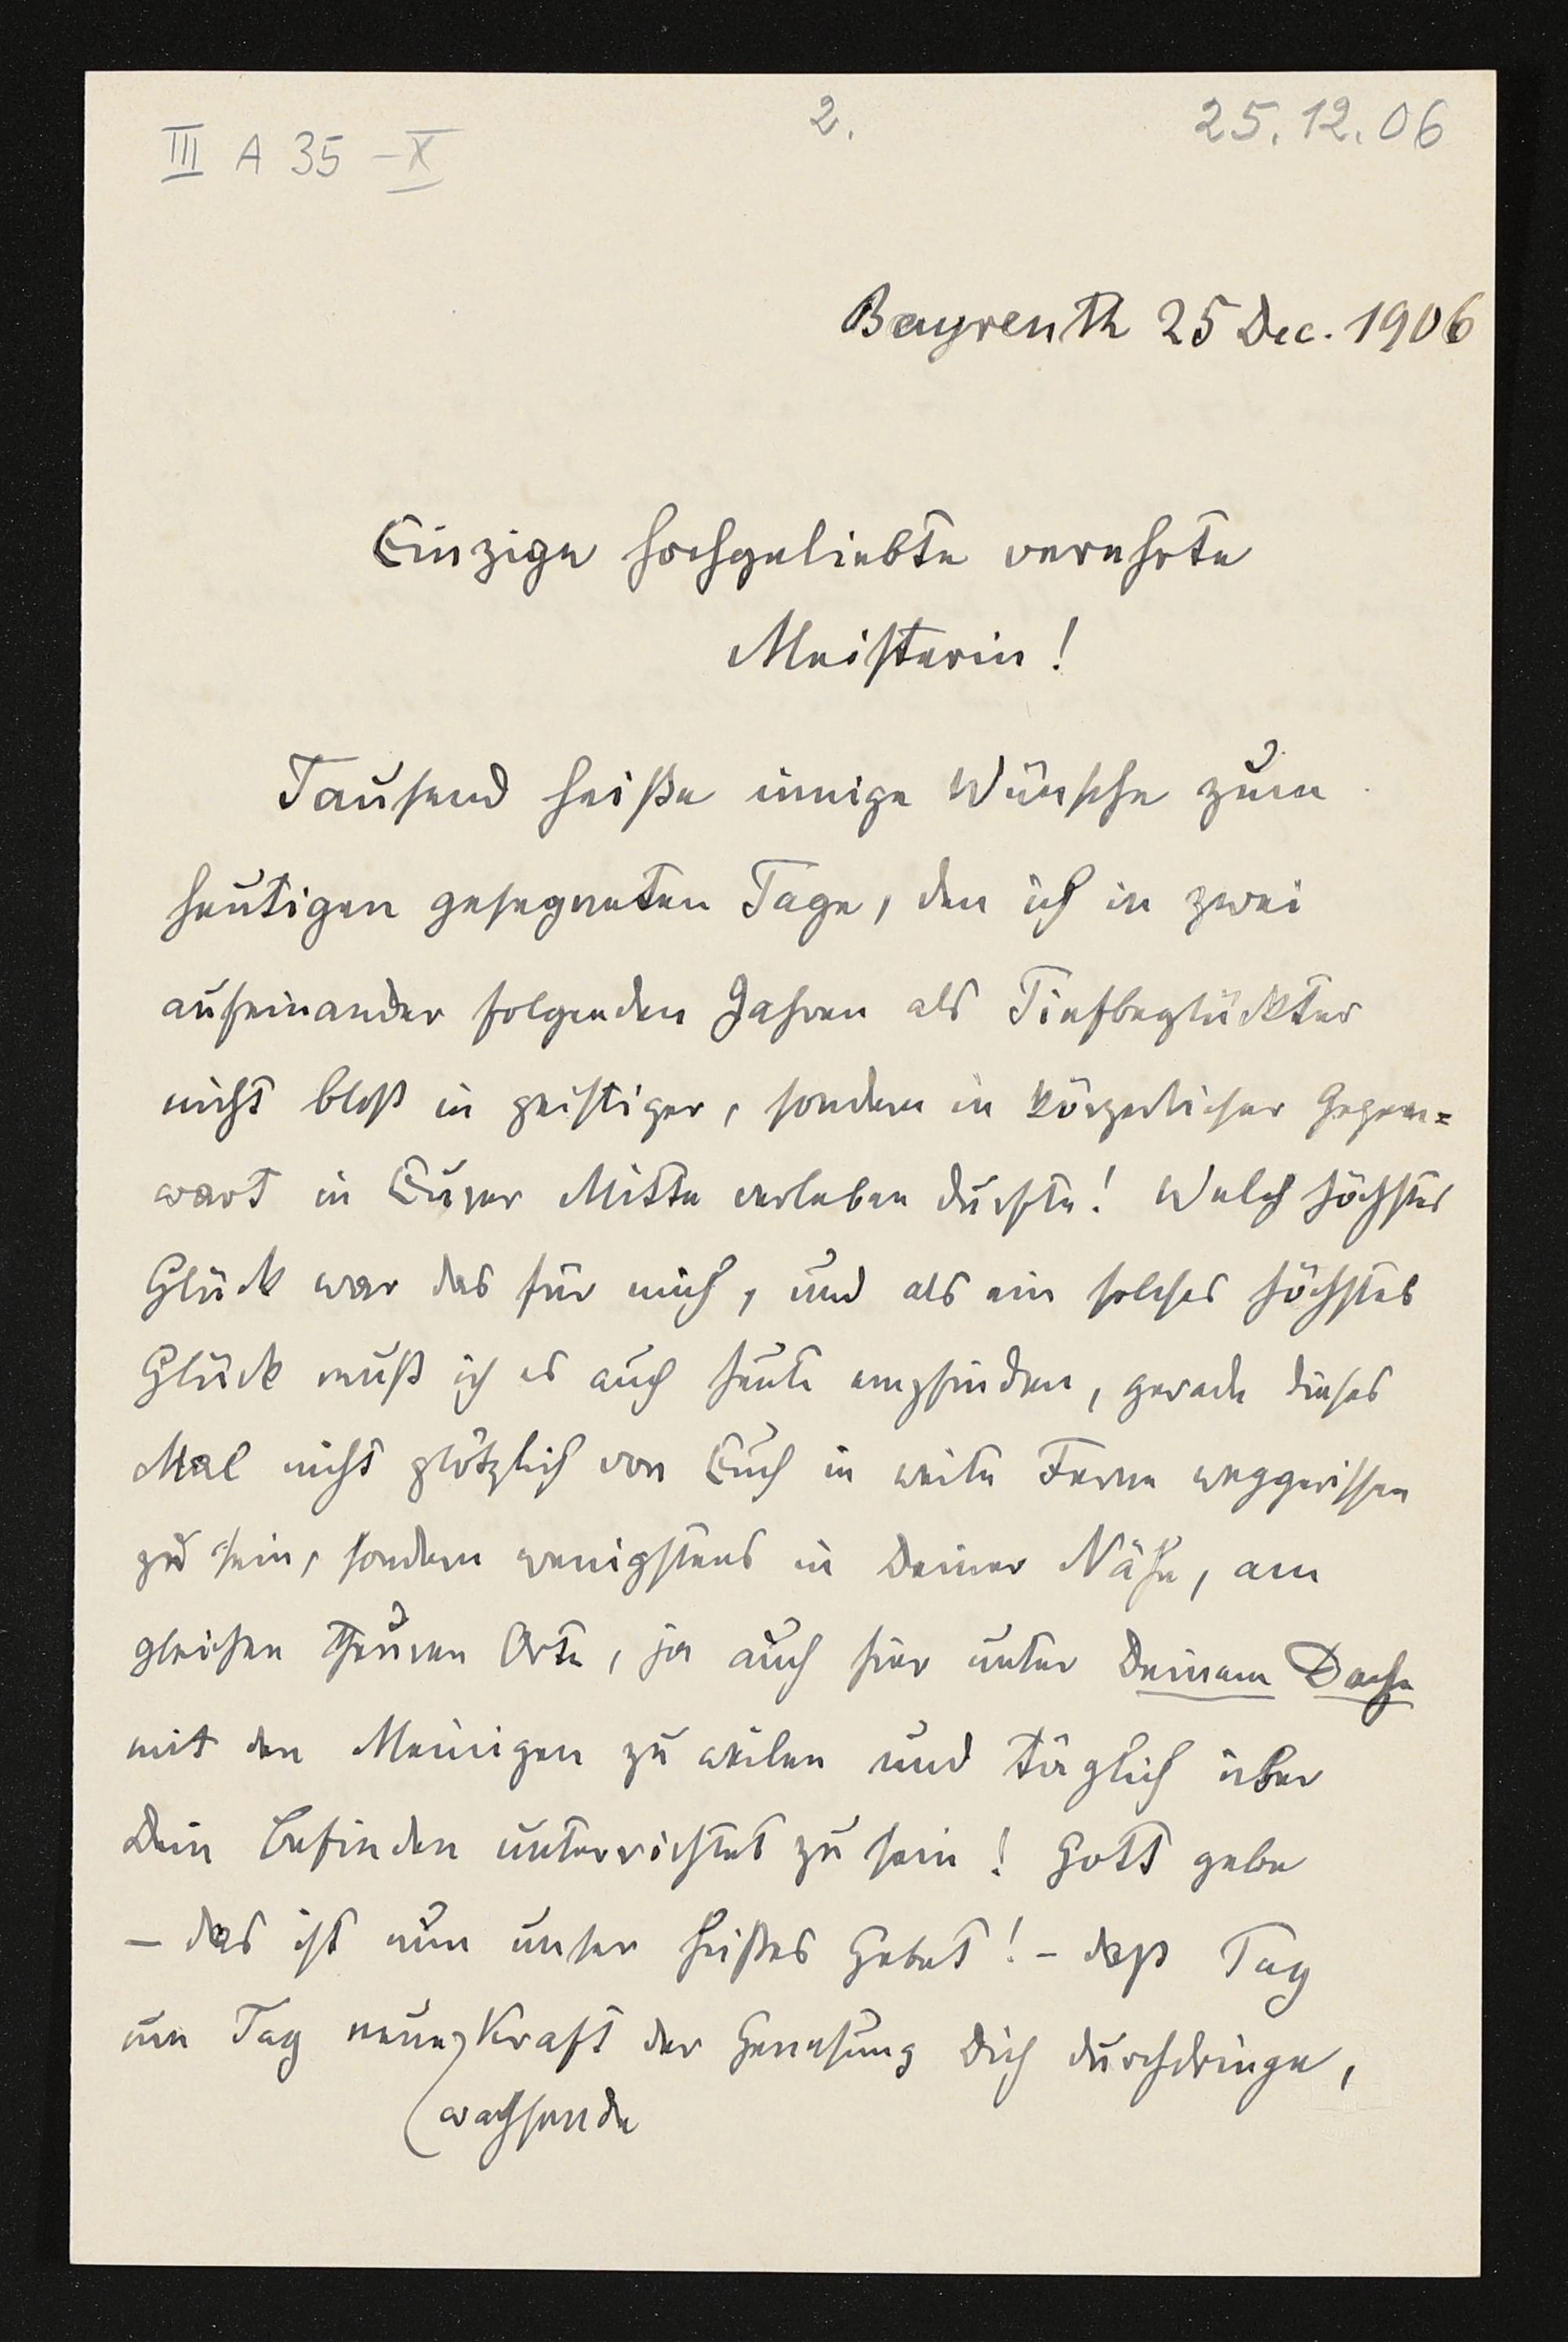 III A 35 – X
2.
25.12.06
Bayreuth 25 Dec. 1906
Einzige hochgeliebte verehrte
Meisterin!
Tausend heiße innige Wünsche zum
heutigen gesegneten Tage, den ich in zwei
aufeinander folgenden Jahren als Tiefbeglückter
nicht bloß in geistiger, sondern in körperlicher Gegen=
wart in Eurer Mitte verleben durfte! Welch höchstes
Glück war das für mich, und als ein solches höchstes
Glück muß ich es auch heute empfinden, gerade dieses
Mal nicht plötzlich von Euch in weite Ferne weggerissen
zu sein, sondern wenigstens in Deiner Nähe, am
gleichen theuren Orte, ja auch hier unter Deinem Dache
mit den Meinigen zu weilen und täglich über
Dein Befinden unterrichtet zu sein! Gott gebe
– das ist nun unser heißes Gebet! – dass Tag
um Tag neue Kraft der Genesung Dich durchdringe,
(wachsende